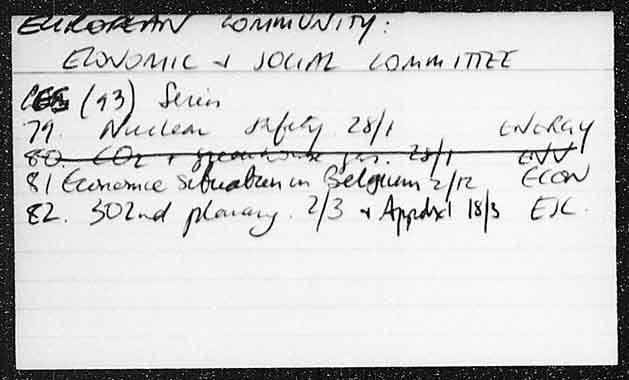 EUROPEAN COMMUNITY:
ECONOMIC + SOCIAL COMMITTEE
CES (93) Series
79. Nuclear safety. 28/1 ENERGY
80. CO2 + greenhouse gas. 28/1 ENV
81 Economic Situation in Belgium 2/12 ECON
82. 302nd plenary. 2/3 + Appdx1 18/3 ESC.